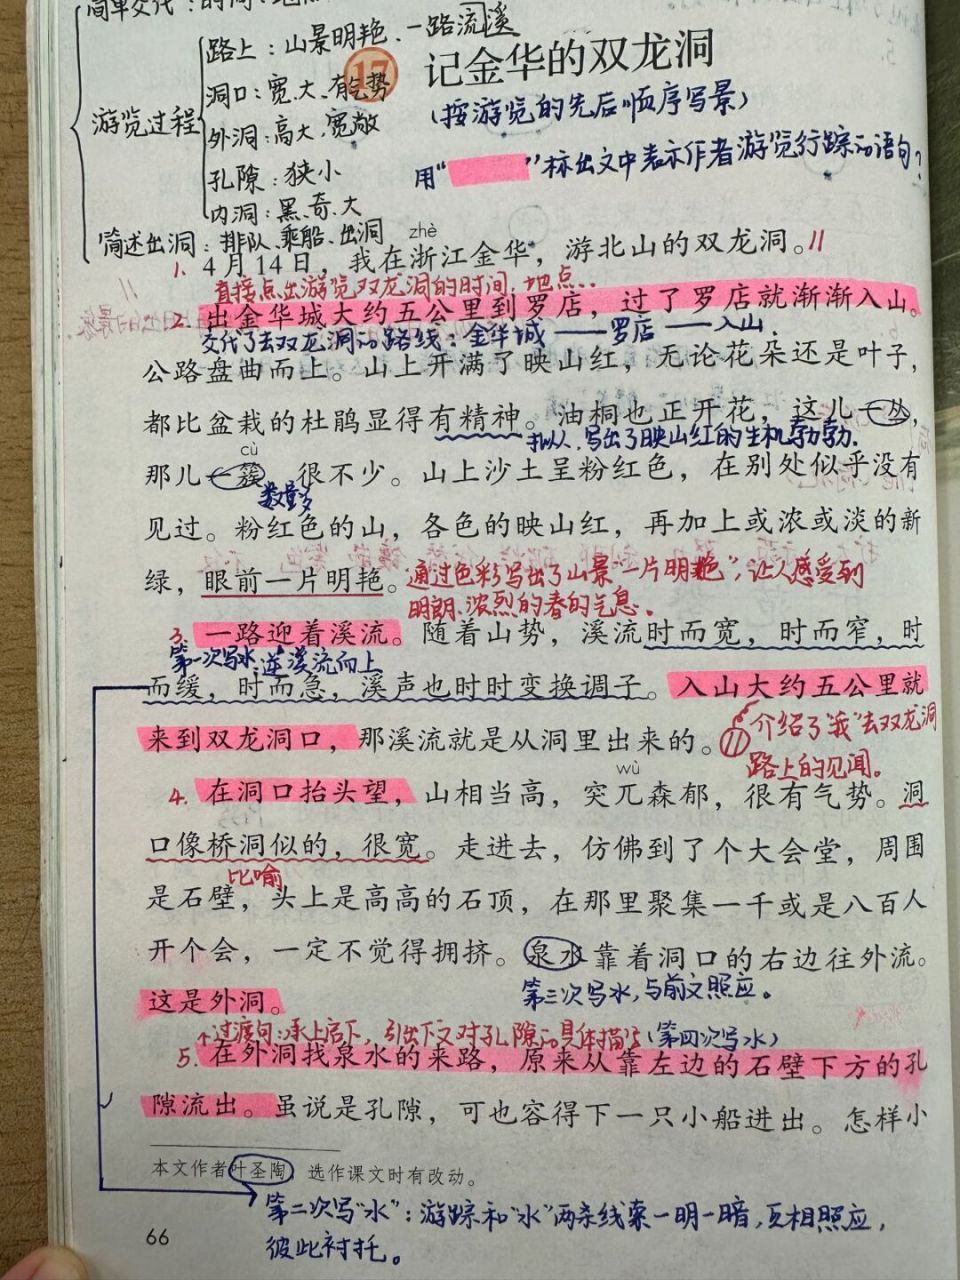 简单交代：时间、地点
路上：山景明艳、一路流溪
17 记金华的双龙洞
洞口：宽、大、有气势
(按游览的先后顺序写景)
游览过程
外洞：高大、宽敞
用“ ”标出文中表示作者游览行踪的语句？
孔隙：狭小
内洞：黑、奇、大
简述出洞：排队、乘船、出洞
zhè
1. 4月14日，我在浙江金华，游北山的双龙洞。//
直接点出游览双龙洞的时间、地点..
2. 出金华城大约五公里到罗店，过了罗店就渐渐入山。
交代了去双龙洞的路线：金华城——罗店——入山.
公路盘曲而上。山上开满了映山红，无论花朵还是叶子，
都比盆栽的杜鹃显得有精神。油桐也正开花，这儿一丛，
拟人、写出了映山红的生机勃勃.
cù
那儿一簇，很不少。山上沙土呈粉红色，在别处似乎没有
数量多
见过。粉红色的山，各色的映山红，再加上或浓或淡的新
绿，眼前一片明艳。
通过色彩写出了山景“一片明艳”，让人感受到
明朗、浓烈的春的气息。
3. 一路迎着溪流。随着山势，溪流时而宽，时而窄，时
第一次写水：逆溪流而上
而缓，时而急，溪声也时时变换调子。入山大约五公里就
来到双龙洞口，那溪流就是从洞里出来的。
// 介绍了“我”去双龙洞
路上的见闻。
wù
4. 在洞口抬头望，山相当高，突兀森郁，很有气势。洞
口像桥洞似的，很宽。走进去，仿佛到了个大会堂，周围
比喻
是石壁，头上是高高的石顶，在那里聚集一千或是八百人
开个会，一定不觉得拥挤。泉水靠着洞口的右边往外流。
第三次写水，与前文照应。
这是外洞。
↑过渡句：承上启下，引出下文对孔隙的具体描写(第四次写水)
5. 在外洞找泉水的来路，原来从靠左边的石壁下方的孔
隙流出。虽说是孔隙，可也容得下一只小船进出。怎样小
本文作者叶圣陶，选作课文时有改动。
第二次写“水”：游踪和“水”两条线索一明一暗，互相照应，
66
彼此衬托。